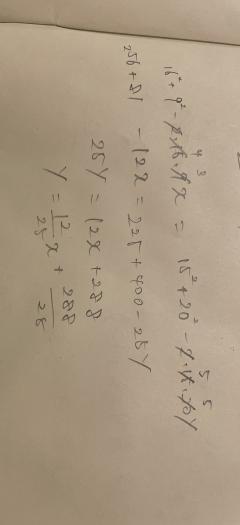 4 3 5 5
16² + 9² - 2·16·9 x = 15² + 20² - 2·15·20 Y
256 + 81 - 12x = 225 + 400 - 25Y
25Y = 12x + 288
Y = 12/25 x + 288/25